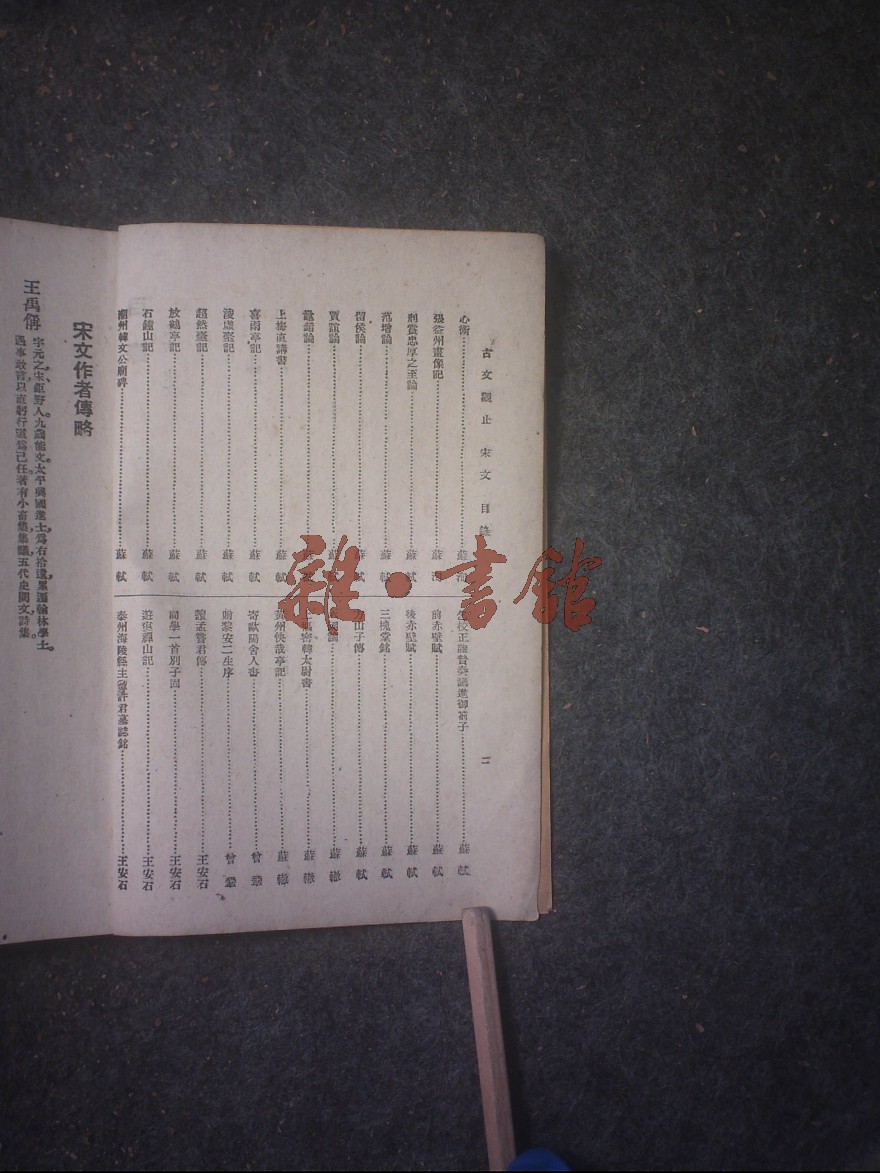 古文觀止 宋文 目錄 二
心術 蘇洵
張益州畫像記 蘇洵
刑賞忠厚之至論 蘇軾
范增論 蘇軾
留侯論 蘇軾
賈誼論 蘇軾
鼂錯論
上梅直講書 蘇軾
喜雨亭記 蘇軾
淩虛臺記 蘇軾
超然臺記 蘇軾
放鶴亭記 蘇軾
石鐘山記 蘇軾
潮州韓文公廟碑 蘇軾
校正陸贄奏議進御劄子 蘇軾
前赤壁賦 蘇軾
後赤壁賦 蘇軾
三槐堂銘 蘇軾
山子傳 蘇軾
國論 蘇轍
上樞密韓太尉書 蘇轍
黃州快哉亭記 蘇轍
寄歐陽舍人書 曾鞏
贈黎安二生序 曾鞏
讀孟嘗君傳 王安石
同學一首別子固 王安石
遊褒禪山記 王安石
泰州海陵縣主簿許君墓誌銘 王安石
宋文作者傳略
王禹偁
字元之，宋鉅野人。九歲能文。太平興國進士，爲右拾遺，累遷翰林學士。
遇事敢言，以直躬行道爲己任。著有小畜集，集議，五代史闕文詩集。
雜·書館